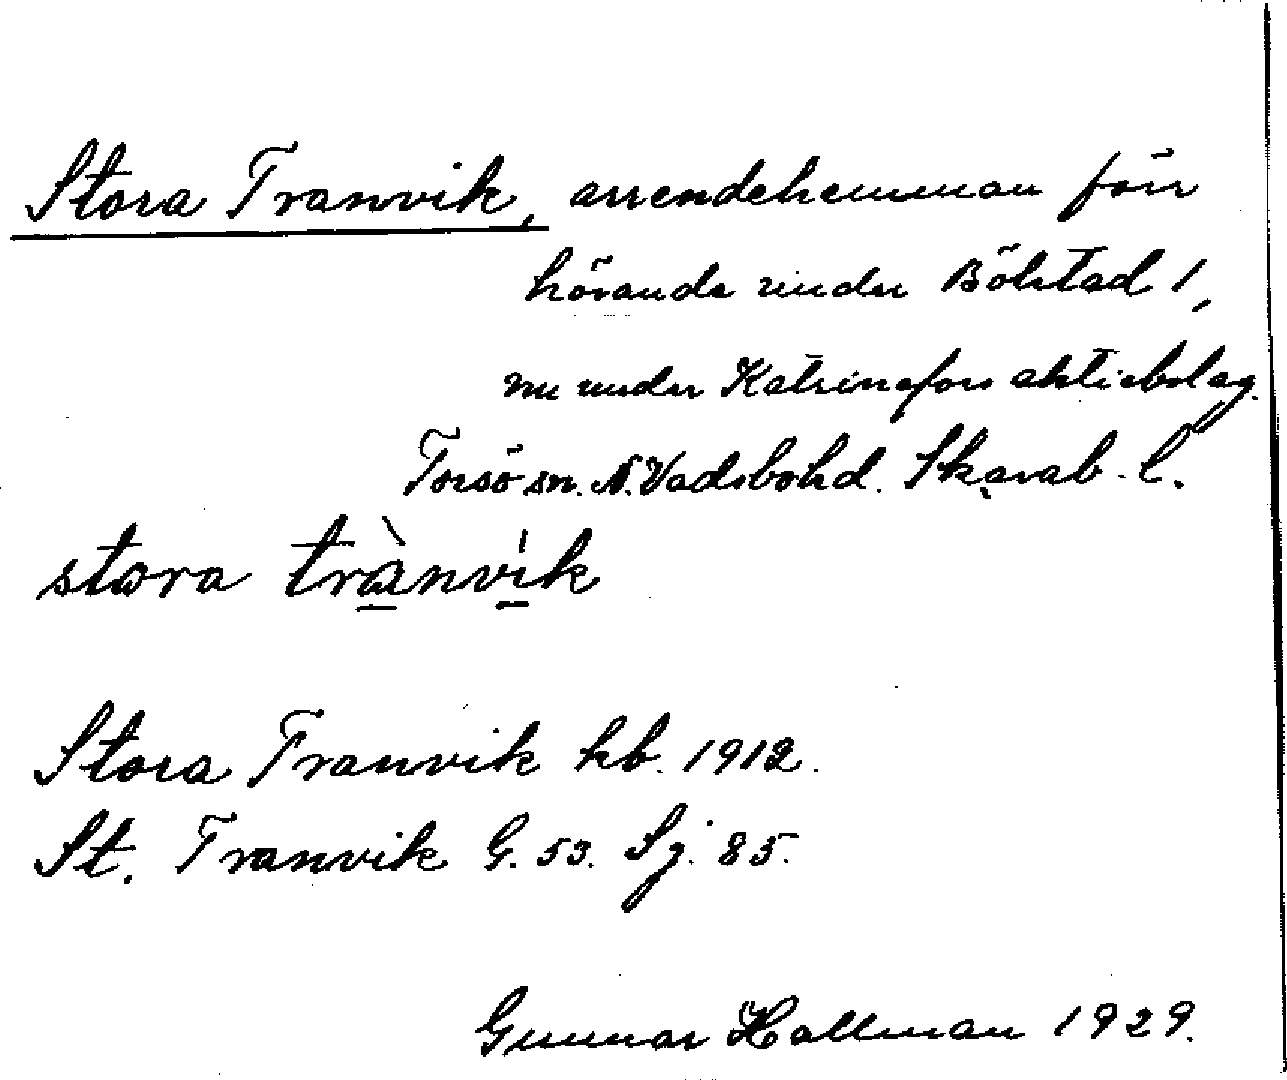 Stora Tranvik, arrendehemman förr
hörande under Bölstad 1,
nu under Katrinefors aktiebolag.
Torsö sn. N. Vadsbohd. Skarab. l.
stora trànvík
Stora Tranvik kb. 1912.
St. Tranvik G. 53. Sj. 85.
Gunnar Hallman 1929.